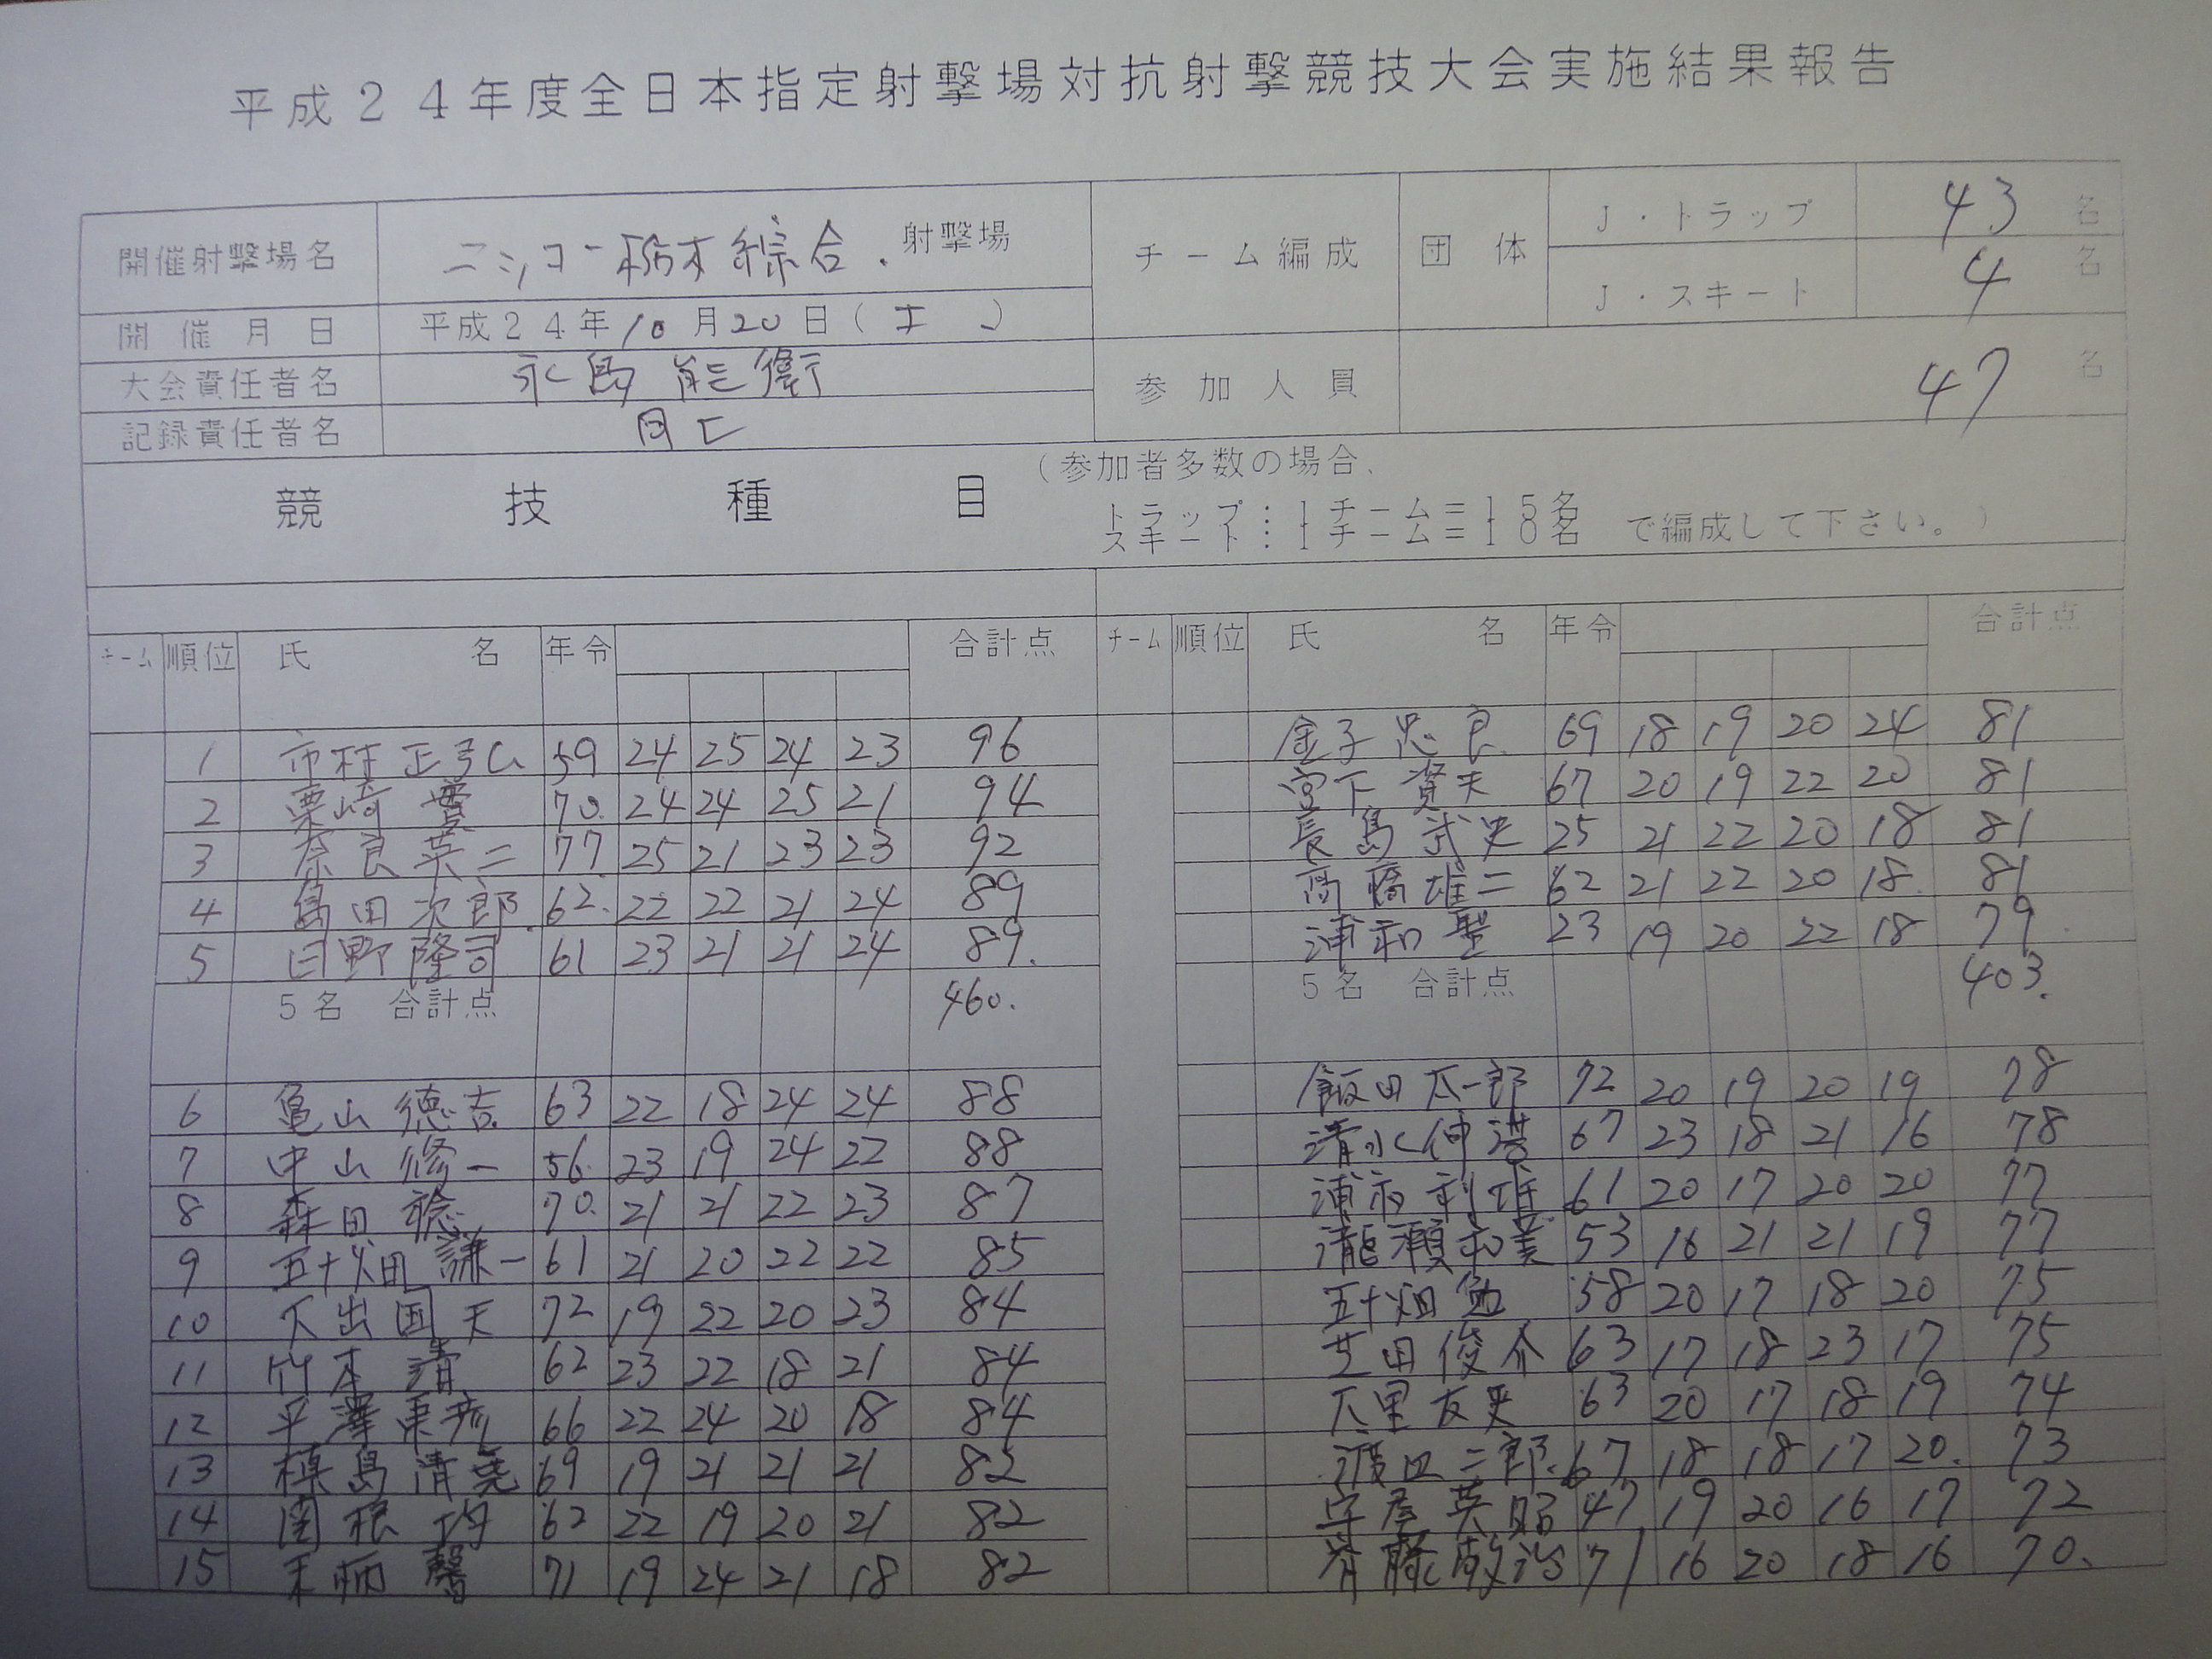 平成２４年度全日本指定射撃場対抗射撃競技大会実施結果報告
開催射撃場名 ニッコー栃木綜合. 射撃場 チーム編成 団体 J・トラップ 43 名
J・スキート 4 名
開催月日 平成２４年10月20日(土)
大会責任者名 永島 能衛 参加人員 47 名
記録責任者名 同上
競技種目 (参加者多数の場合、
トラップ：１チーム＝１５名
スキート：１チーム＝１０名 で編成して下さい。)
チーム 順位 氏名 年令 合計点 チーム 順位 氏名 年令 合計点
1 市村 正弘 59 24 25 24 23 96 金子 忠良 69 18 19 20 24 81
2 栗崎 70 24 24 25 21 94 宮下 資夫 67 20 19 22 20 81
3 奈良英二 77 25 21 23 23 92 長島 武史 25 21 22 20 18 81
4 島田次郎 62 22 22 21 24 89 高橋雄二 62 21 22 20 18 81
5 日野隆司 61 23 21 21 24 89 浦和 聖 23 19 20 22 18 79
5名 合計点 460. 5名 合計点 403.
6 亀山 徳吉 63 22 18 24 24 88 飯田 太一郎 72 20 19 20 19 78
7 中山 修一 56 23 19 24 22 88 清水 67 23 18 21 16 78
8 森田 70 21 21 22 23 87 利雄 61 20 17 20 20 77
9 五十畑 謙一 61 21 20 22 22 85 瀧瀬和美 53 16 21 21 19 77
10 国夫 72 19 22 20 23 84 五十畑 勉 58 20 17 18 20 75
11 竹本 清 62 23 22 18 21 84 芝田 俊介 63 17 18 23 17 75
12 平澤 66 22 24 20 18 84 友史 63 20 17 18 19 74
13 槙島 清 69 19 21 21 21 82 渡辺 二郎 67 18 18 17 20 73
14 関根 均 62 22 19 20 21 82 英昭 47 19 20 16 17 72
15 馨 71 19 24 21 18 82 71 16 20 18 16 70.